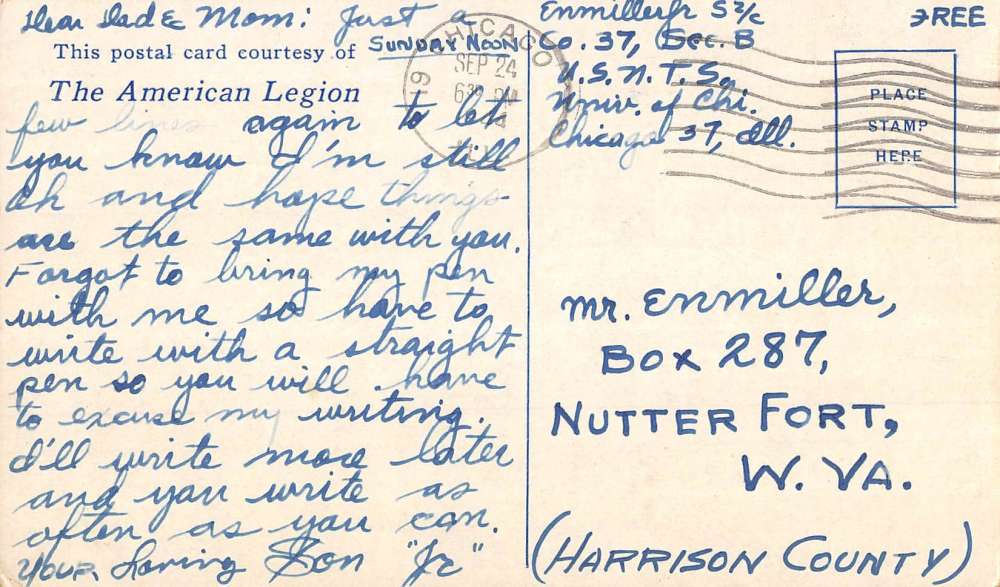 Dear Dad & Mom: Just a
Sunday Noon
This postal card courtesy of
The American Legion
few lines again to let
you know I'm still
ok and hope things
are the same with you.
Forgot to bring my pen
with me so have to
write with a straight
pen so you will have
to excuse my writing.
I'll write more later
and you write as
often as you can.
Your Loving Son "Jr"
CHICAGO
SEP 24
630 PM
19
Enmiller Jr S 2/c
Co. 37, Sec. B
U.S.N.T.S.
Univ. of Chi.
Chicago 37, Ill.
FREE
PLACE
STAMP
HERE
Mr. Enmiller,
Box 287,
NUTTER FORT,
W. VA.
(HARRISON COUNTY)